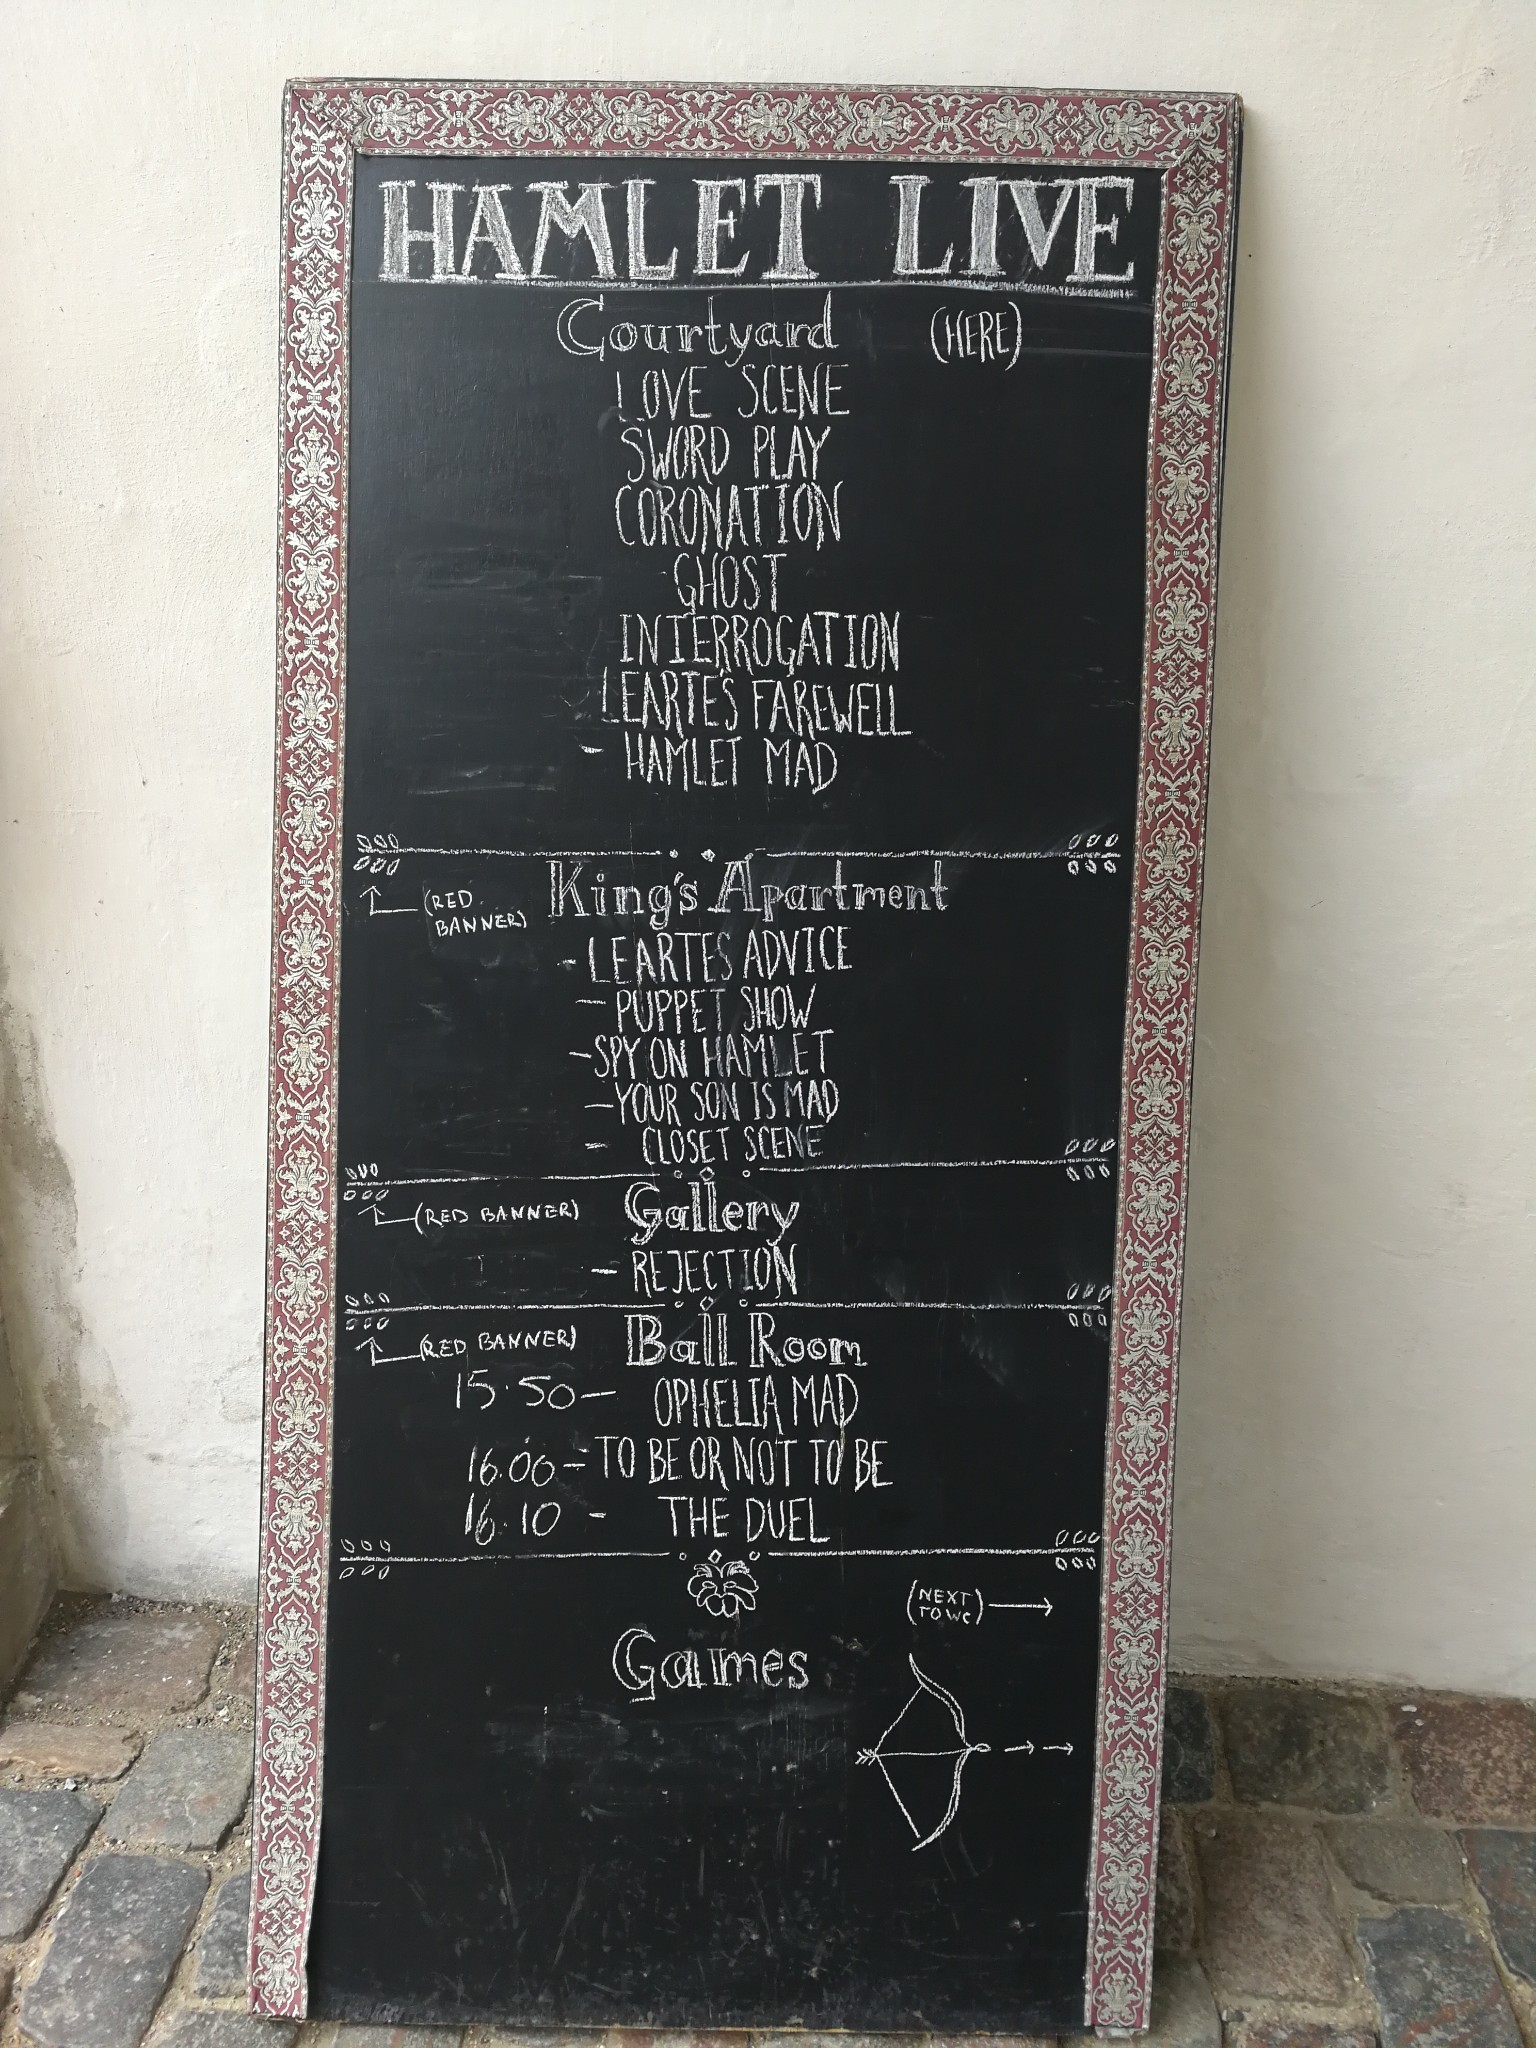 HAMLET LIVE
Courtyard (HERE)
LOVE SCENE
SWORD PLAY
CORONATION
GHOST
INTERROGATION
LEARTES FAREWELL
- HAMLET MAD
(RED BANNER) King's Apartment
- LEARTES ADVICE
- PUPPET SHOW
- SPY ON HAMLET
- YOUR SON IS MAD
- CLOSET SCENE
(RED BANNER) Gallery
- REJECTION
(RED BANNER) Ball Room
15.50 - OPHELIA MAD
16.00 - TO BE OR NOT TO BE
16.10 - THE DUEL
(NEXT TO WC)
Games